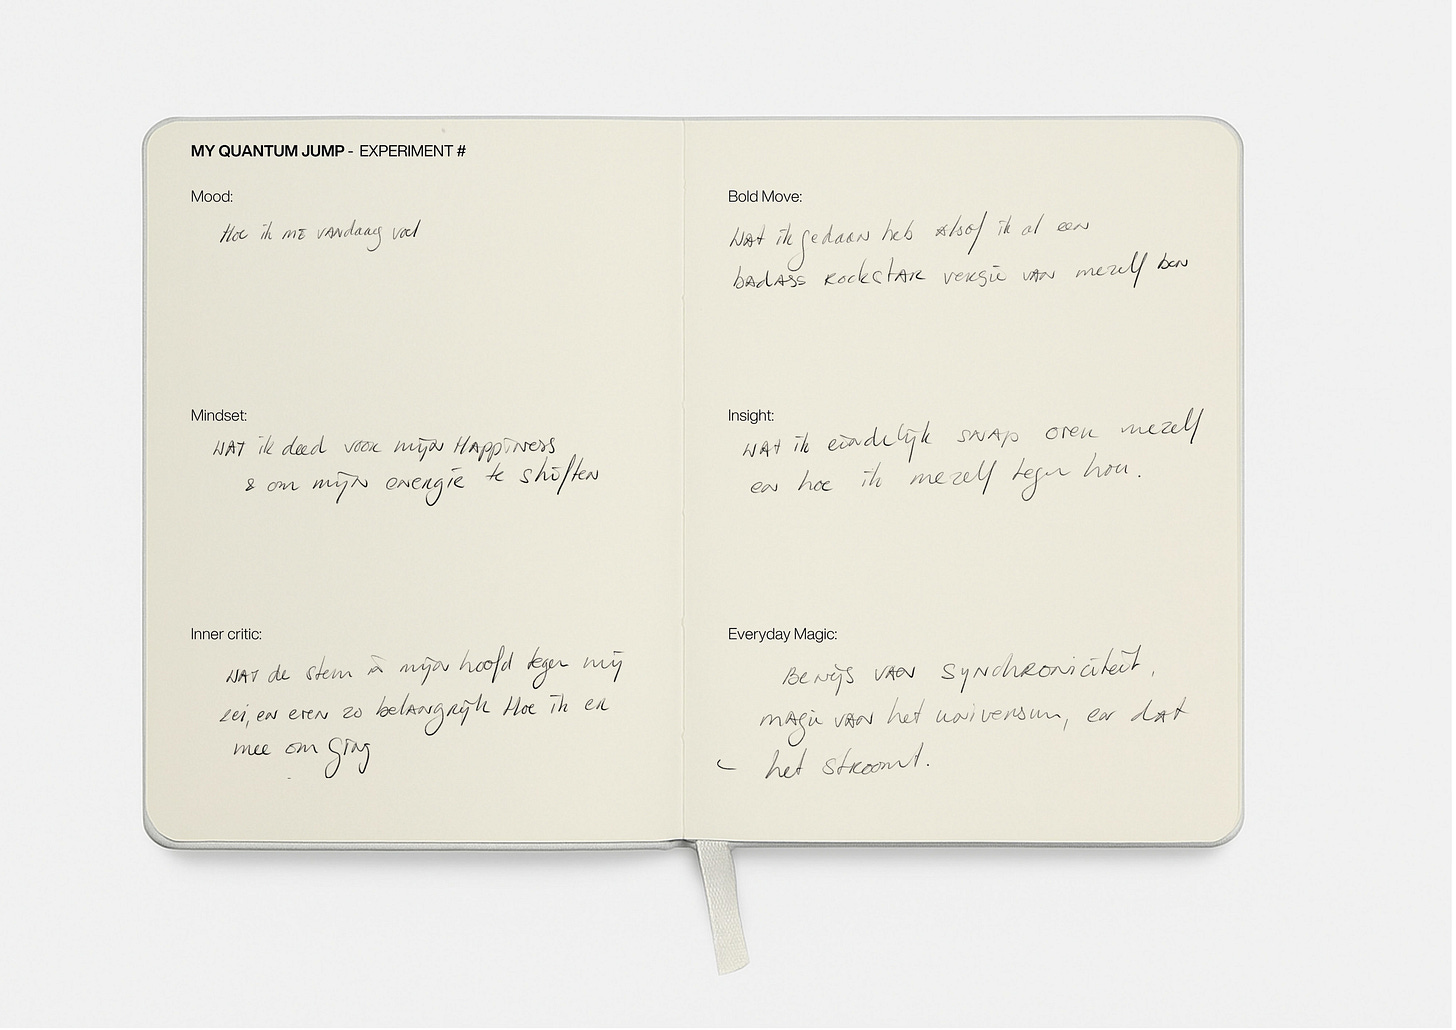 MY QUANTUM JUMP - EXPERIMENT #
Mood:
Hoe ik me vandaag voel
Mindset:
WAT ik deed voor mijn Happiness
& om mijn energie te shiften
Inner critic:
WAT de stem in mijn hoofd tegen mij
zei, en even zo belangrijk Hoe ik er
mee om ging
Bold Move:
Wat ik gedaan heb alsof ik al een
badass Rockstar versie van mezelf ben
Insight:
WAT ik eindelijk snap over mezelf
en hoe ik mezelf tegen hou.
Everyday Magic:
Bewijs van synchroniciteit,
magie van het universum, en dat
het stroomt.